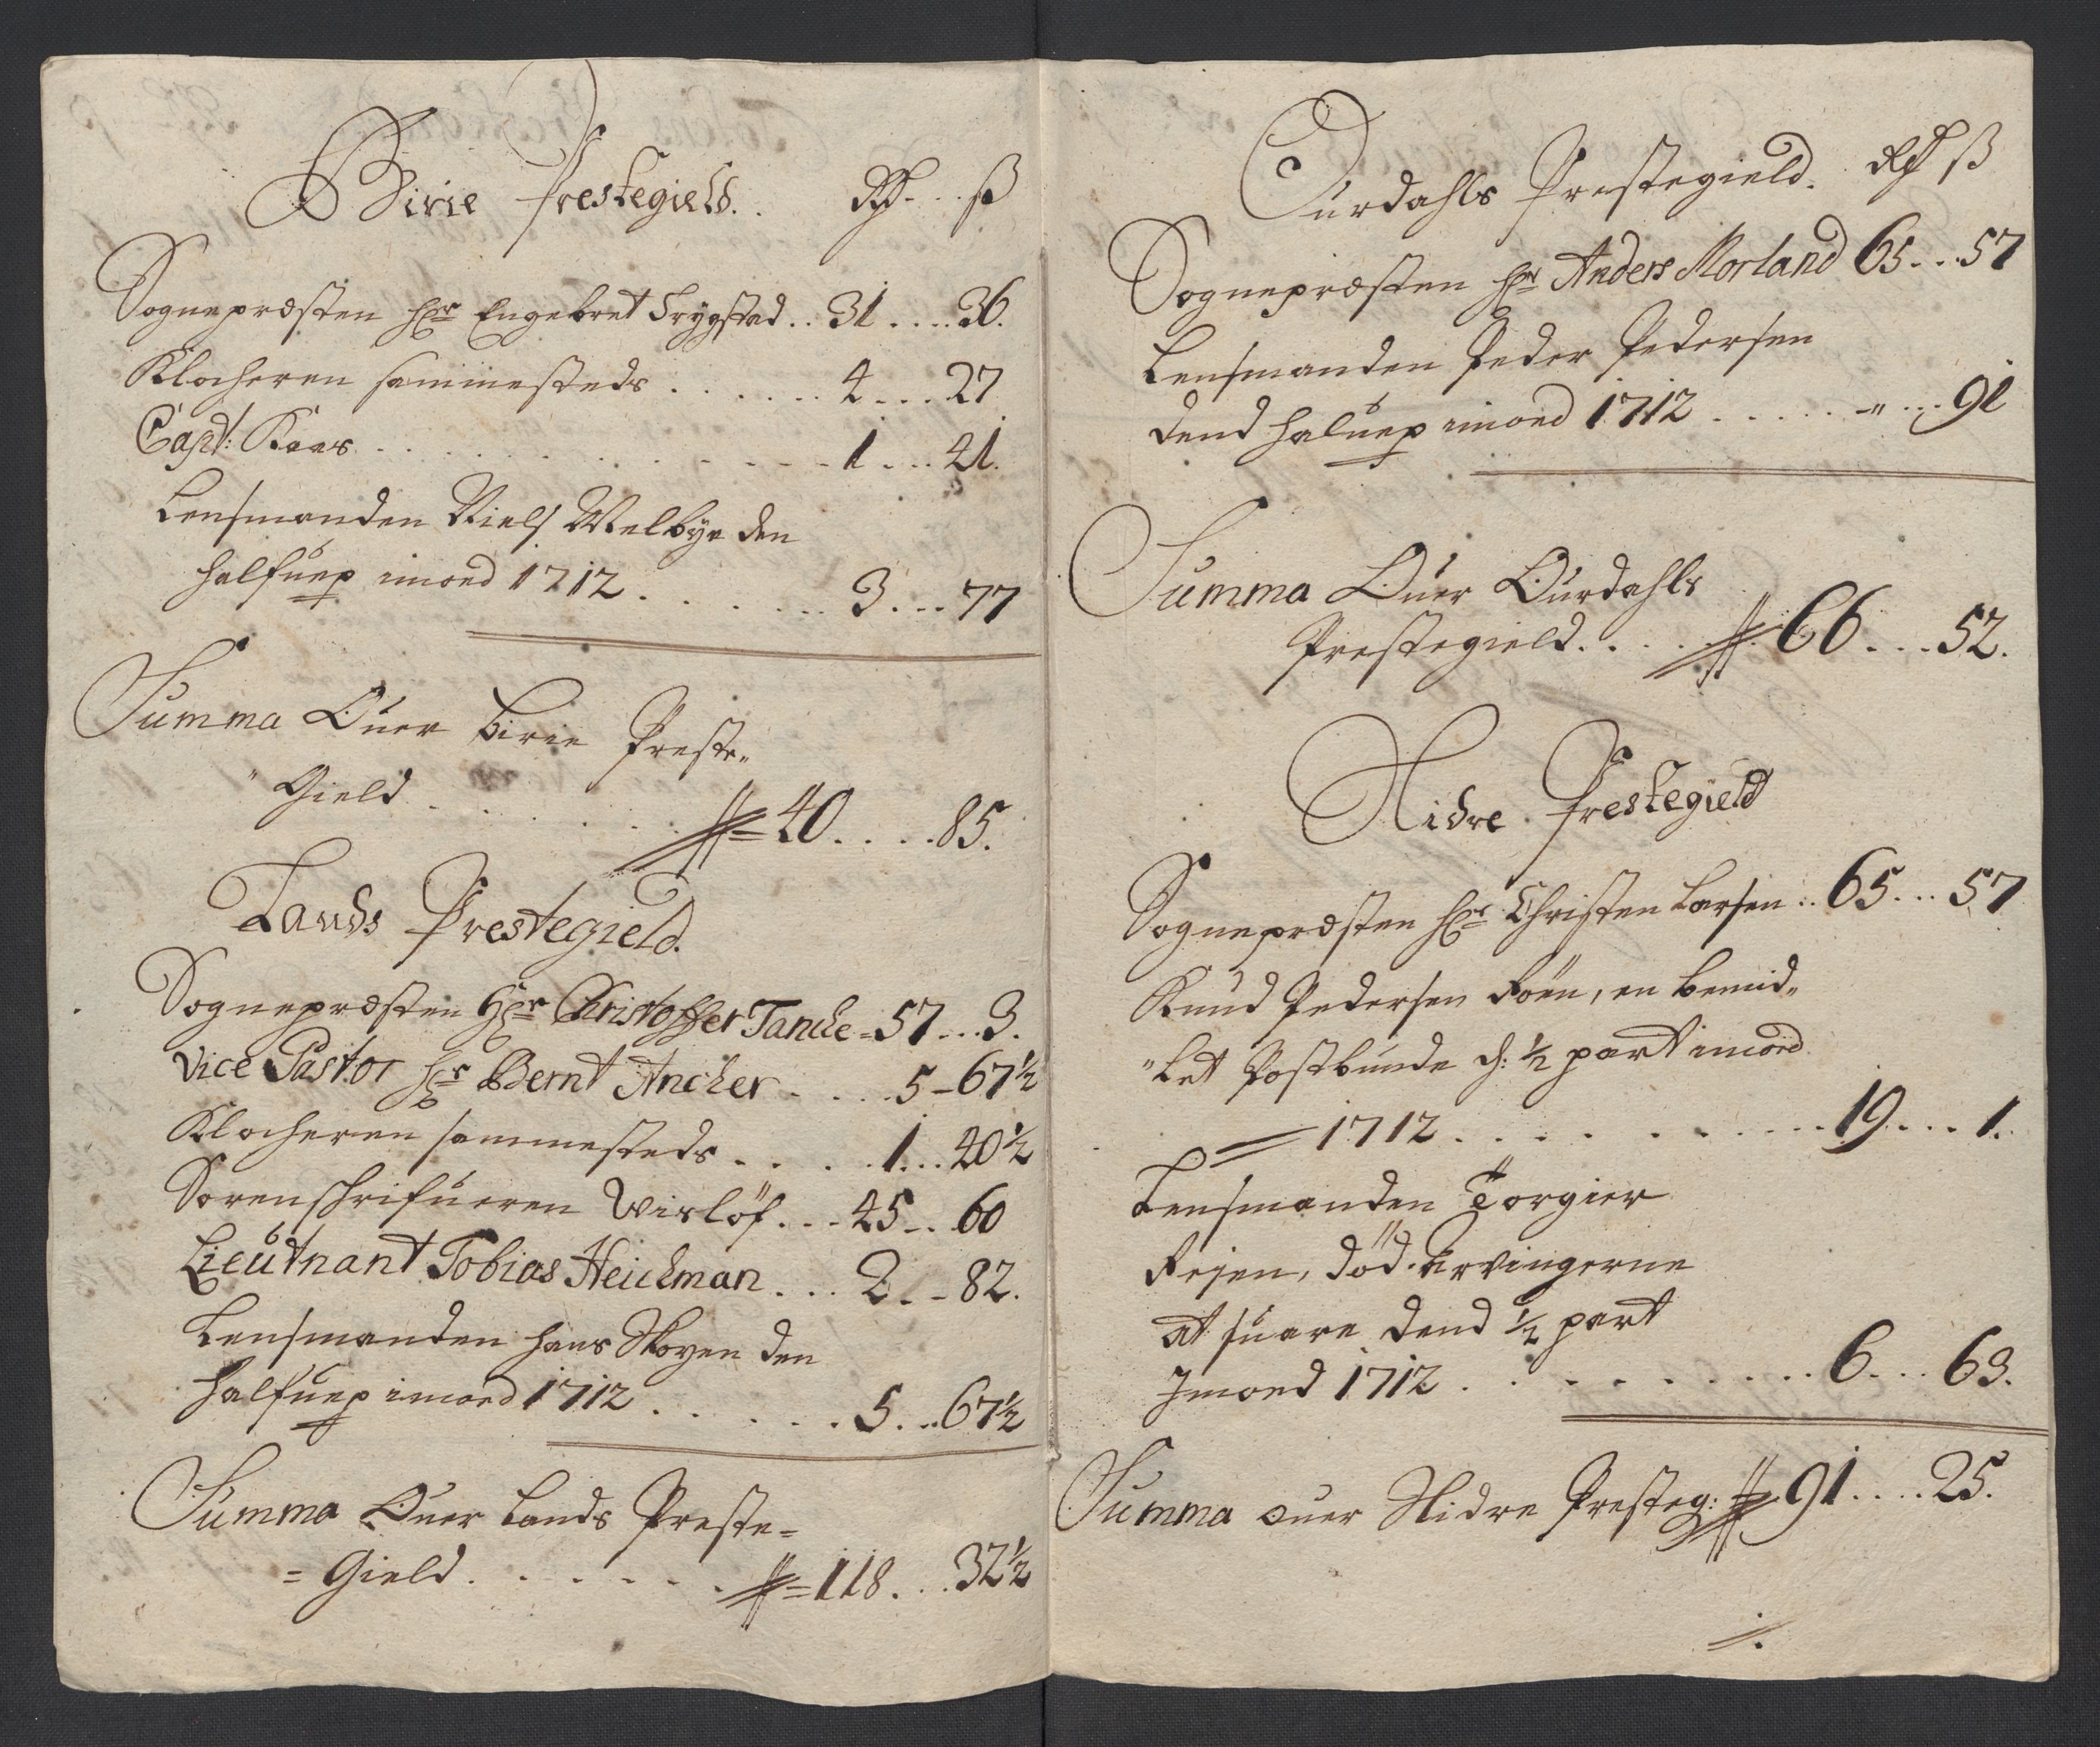 Birie Prestegield. Rdr. ß
Sognepræsten Hr Engebret Trygstad .. 31 .... 36.
Klocheren sammesteds ...... 4 .... 27
Capt: Kaas ............ 1 .... 41.
Lensmanden Niels Melbye den
halfuep: imoed 1712 ...... 3 .... 77
Summa Ouer Birie Preste„
„Gield ...... 40 .... 85.
Lands Prestegield.
Sognepræsten Hr Christoffer Tanche = 57 ... 3.
Vice Pastor Hr Bernt Ancher .... 5 - 67½
Klocheren sammesteds .... 1 ... 40½
Sorenschrifueren Wislöf ... 45 ... 60
Lieutnant Tobias Heichman ... 2 .. - 82.
Lensmanden Hans Skoyen den
halfuep: imoed 1712 ...... 5 ... 67½
Summa Ouer Lands Preste=
= Gield ...... = 118 ... 32½
Ourdahls Prestegield. Rdr ß
Sognepræsten Hr Anders Morland 65 ... 57
Lensmanden Peder Pedersen
dend haluep: imoed 1712 ..... „ ... 91
Summa Ouer Ourdahls
Prestegield .... 66 ... 52.
Slidre Prestegield
Sognepræsten Hr Christen Larsen .. 65 ... 57
Knud Pedersen Foën, en bemid„
„let Postbunde d: ½ part imoed
1712 .......... 19 ... 1.
Lensmanden Torgier
död. Arvingerne
at suare dend ½ part
Jmoed 1712 ......... 6 ... 63.
Summa ouer Slidre Presteg: 91 .... 25.